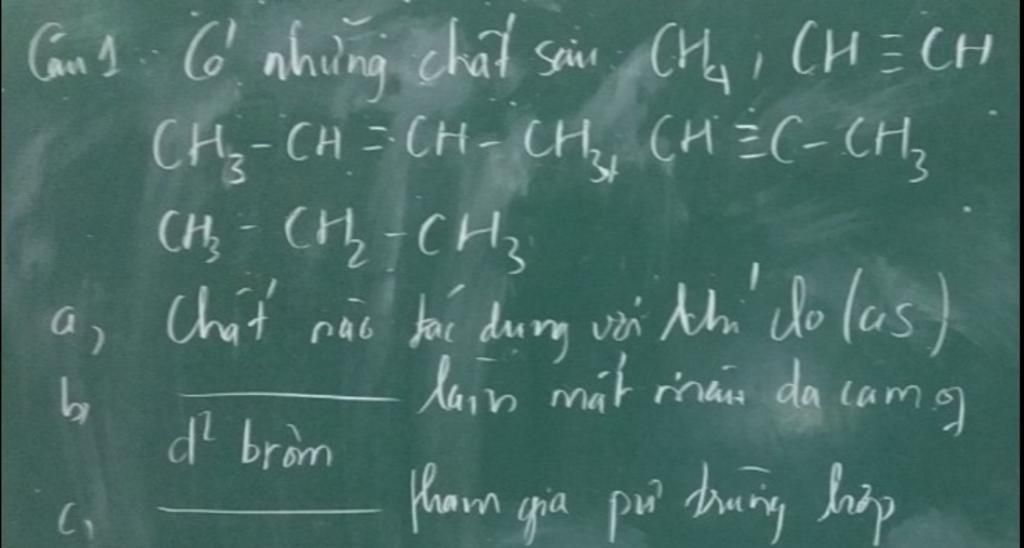 Câu 1. Có những chất sau CH₄, CH≡CH
CH₃-CH=CH-CH₃, CH≡C-CH₃
CH₃-CH₂-CH₃
a, Chất nào tác dụng với khí clo (as)
b, ———— làm mất màu da cam of
d² brom
c, ———— tham gia pư trùng hợp